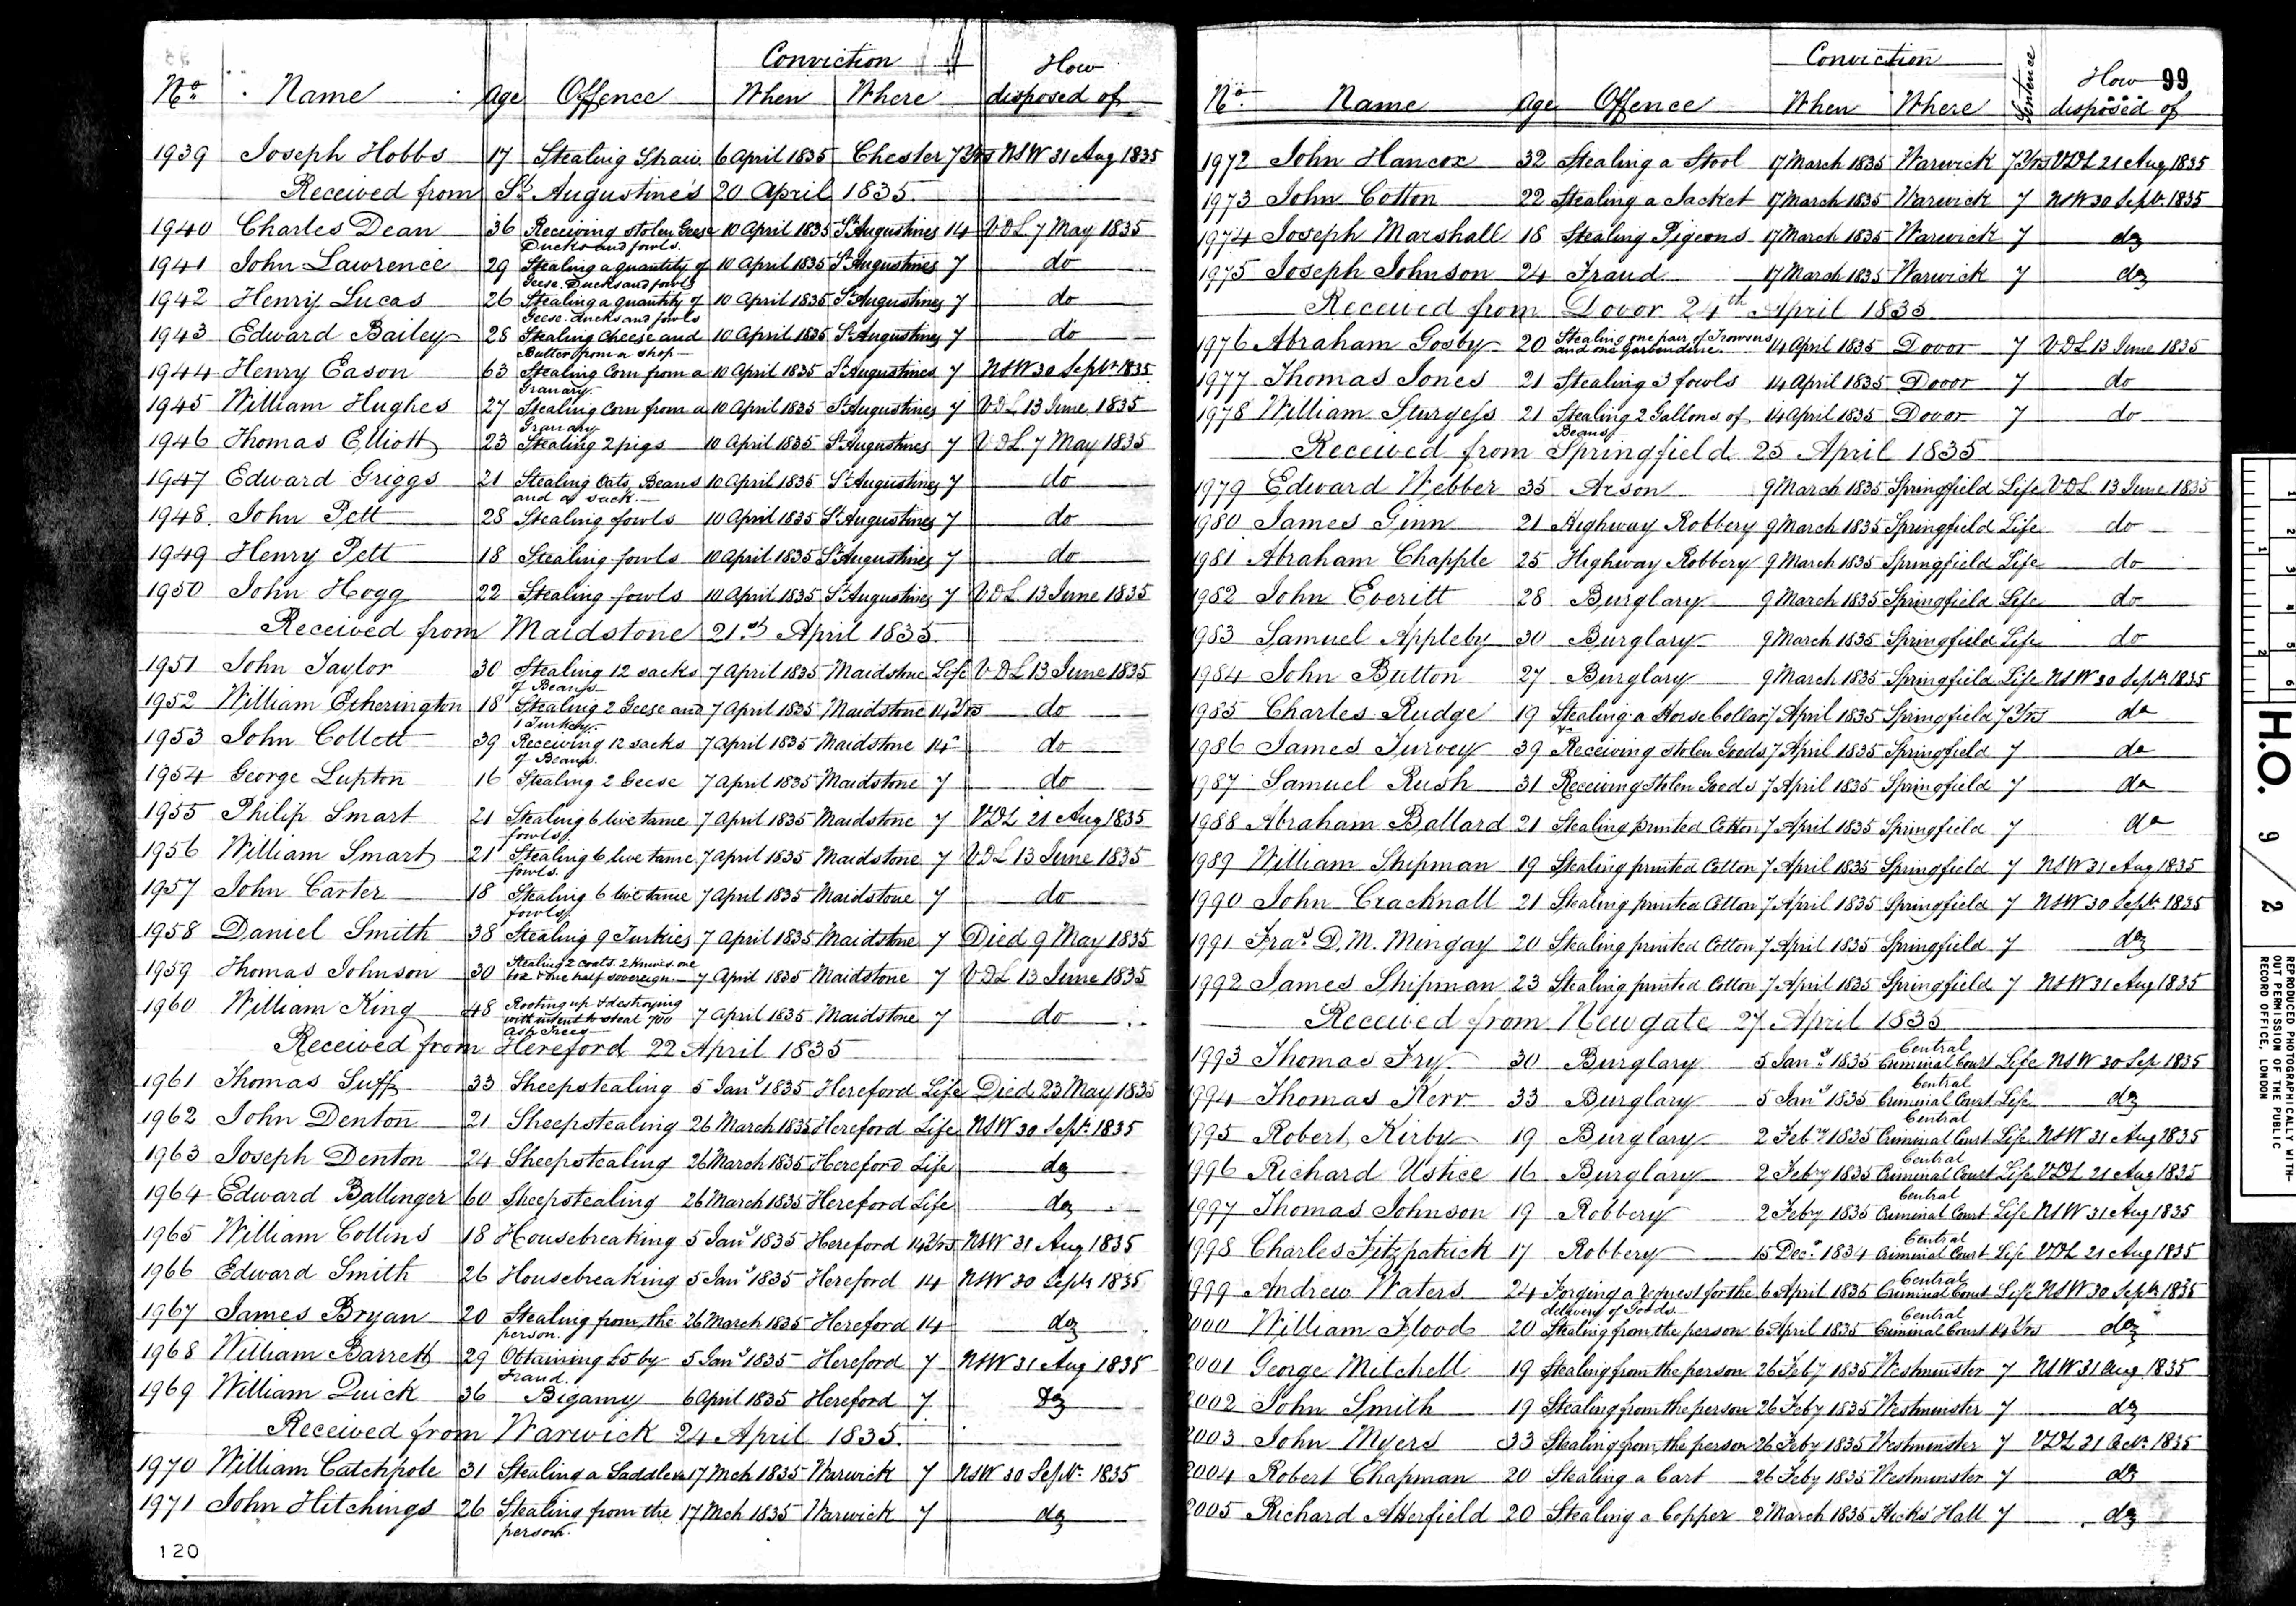 No. Name Age Offence Conviction When Where How disposed of
1939 Joseph Hobbs 17 Stealing Straw 6 April 1835 Chester 7 Yrs NSW 31 Aug 1835
Received from St. Augustine's 20 April 1835
1940 Charles Dean 36 Receiving stolen Geese Ducks and fowls. 10 April 1835 St Augustines 14 VDL 7 May 1835
1941 John Lawrence 29 Stealing a quantity of Geese Ducks and fowls 10 April 1835 St Augustines 7 do
1942 Henry Lucas 26 Stealing a quantity of Geese ducks and fowls 10 April 1835 St Augustines 7 do
1943 Edward Bailey 28 Stealing Cheese and Butter from a shop 10 April 1835 St Augustines 7 do
1944 Henry Eason 63 Stealing Corn from a Granary. 10 April 1835 St Augustines 7 NSW 30 Sept 1835
1945 William Hughes 27 Stealing Corn from a Granary 10 April 1835 St Augustines 7 VDL 13 June 1835
1946 Thomas Elliott 23 Stealing 2 pigs 10 April 1835 St Augustines 7 VDL 7 May 1835
1947 Edward Griggs 21 Stealing Oats, Beans and a sack. 10 April 1835 St Augustines 7 do
1948 John Pett 28 Stealing fowls 10 April 1835 St Augustines 7 do
1949 Henry Pett 18 Stealing fowls 10 April 1835 St Augustines 7 do
1950 John Hogg 22 Stealing fowls 10 April 1835 St Augustines 7 VDL 13 June 1835
Received from Maidstone 21st April 1835
1951 John Taylor 30 Stealing 12 sacks of Beans 7 April 1835 Maidstone Life VDL 13 June 1835
1952 William Etherington 18 Stealing 2 Geese and 1 Turkey. 7 April 1835 Maidstone 14 Yrs do
1953 John Collett 39 Receiving 12 sacks of Beans. 7 April 1835 Maidstone 14 do
1954 George Lupton 16 Stealing 2 Geese 7 April 1835 Maidstone 7 do
1955 Philip Smart 21 Stealing 6 live tame fowls. 7 April 1835 Maidstone 7 VDL 21 Aug 1835
1956 William Smart 21 Stealing 6 live tame fowls. 7 April 1835 Maidstone 7 VDL 13 June 1835
1957 John Carter 18 Stealing 6 live tame fowls. 7 April 1835 Maidstone 7 do
1958 Daniel Smith 38 Stealing 9 Turkies 7 April 1835 Maidstone 7 Died 9 May 1835
1959 Thomas Johnson 30 Stealing 2 coats 2 knives one box & one half sovereign 7 April 1835 Maidstone 7 VDL 13 June 1835
1960 William King 48 Rooting up & destroying with intent to steal 700 Ash Trees 7 April 1835 Maidstone 7 do
Received from Hereford 22 April 1835
1961 Thomas Suff 33 Sheepstealing 5 Jany 1835 Hereford Life Died 23 May 1835
1962 John Denton 21 Sheepstealing 26 March 1835 Hereford Life NSW 30 Sept. 1835
1963 Joseph Denton 24 Sheepstealing 26 March 1835 Hereford Life do
1964 Edward Ballinger 60 Sheepstealing 26 March 1835 Hereford Life do
1965 William Collins 18 Housebreaking 5 Jany 1835 Hereford 14 Yrs NSW 31 Aug 1835
1966 Edward Smith 26 Housebreaking 5 Jany 1835 Hereford 14 NSW 30 Sept 1835
1967 James Bryan 20 Stealing from the person. 26 March 1835 Hereford 14 do
1968 William Barrett 29 Obtaining £5 by Fraud. 5 Jany 1835 Hereford 7 NSW 31 Aug 1835
1969 William Quick 36 Bigamy 6 April 1835 Hereford 7 do
Received from Warwick 24 April 1835.
1970 William Catchpole 31 Stealing a Saddle 17 Mch 1835 Warwick 7 NSW 30 Sept. 1835
1971 John Hitchings 26 Stealing from the person. 17 Mch 1835 Warwick 7 do
120
No. Name Age Offence Conviction When Where Sentence How disposed of
99
1972 John Hancox 32 Stealing a Stool 17 March 1835 Warwick 7 Yrs VDL 21 Aug 1835
1973 John Cotton 22 Stealing a Jacket 17 March 1835 Warwick 7 NSW 30 Sept. 1835
1974 Joseph Marshall 18 Stealing Pigeons 17 March 1835 Warwick 7 do
1975 Joseph Johnson 24 Fraud 17 March 1835 Warwick 7 do
Received from Dovor 24th April 1835
1976 Abraham Gosby 20 Stealing one pair of Trowsers and one gaberdine. 14 April 1835 Dovor 7 VDL 13 June 1835
1977 Thomas Jones 21 Stealing 3 fowls 14 April 1835 Dovor 7 do
1978 William Sturgess 21 Stealing 2 Gallons of Beans 14 April 1835 Dovor 7 do
Received from Springfield 25 April 1835
1979 Edward Webber 35 Arson 9 March 1835 Springfield Life VDL 13 June 1835
1980 James Ginn 21 Highway Robbery 9 March 1835 Springfield Life do
1981 Abraham Chapple 25 Highway Robbery 9 March 1835 Springfield Life do
1982 John Everitt 28 Burglary 9 March 1835 Springfield Life do
1983 Samuel Appleby 30 Burglary 9 March 1835 Springfield Life do
1984 John Button 27 Burglary 9 March 1835 Springfield Life NSW 30 Sept 1835
1985 Charles Rudge 19 Stealing a Horse Collar 7 April 1835 Springfield 7 Yrs do
1986 James Turvey 39 Receiving stolen Goods 7 April 1835 Springfield 7 do
1987 Samuel Rush 31 Receiving Stolen Goods 7 April 1835 Springfield 7 do
1988 Abraham Ballard 21 Stealing printed Cotton 7 April 1835 Springfield 7 do
1989 William Shipman 19 Stealing printed Cotton 7 April 1835 Springfield 7 NSW 31 Aug 1835
1990 John Cracknall 21 Stealing printed Cotton 7 April 1835 Springfield 7 NSW 30 Sept. 1835
1991 Fras D. M. Mingay 20 Stealing printed Cotton 7 April 1835 Springfield 7 do
1992 James Shipman 23 Stealing printed Cotton 7 April 1835 Springfield 7 NSW 31 Aug 1835
Received from Newgate 27 April 1835
1993 Thomas Fry 30 Burglary 5 Jany 1835 Central Criminal Court Life NSW 30 Sep 1835
1994 Thomas Kerr 33 Burglary 5 Jany 1835 Central Criminal Court Life do
1995 Robert Kirby 19 Burglary 2 Feby 1835 Central Criminal Court Life NSW 31 Aug 1835
1996 Richard Ustice 16 Burglary 2 Feby 1835 Central Criminal Court Life VDL 21 Aug 1835
1997 Thomas Johnson 19 Robbery 2 Feby 1835 Central Criminal Court Life NSW 31 Aug 1835
1998 Charles Fitzpatrick 17 Robbery 15 Decr 1834 Central Criminal Court Life VDL 21 Aug 1835
1999 Andrew Waters 24 Forging a request for the delivery of Goods 6 April 1835 Central Criminal Court Life NSW 30 Sept 1835
2000 William Flood 20 Stealing from the person 6 April 1835 Central Criminal Court 14 Yrs do
2001 George Mitchell 19 Stealing from the person 26 Feby 1835 Westminster 7 NSW 31 Aug 1835
2002 John Smith 19 Stealing from the person 26 Feby 1835 Westminster 7 do
2003 John Myers 33 Stealing from the person 26 Feby 1835 Westminster 7 VDL 31 Oct. 1835
2004 Robert Chapman 20 Stealing a Cart 26 Feby 1835 Westminster 7 do
2005 Richard Atterfield 20 Stealing a Copper 2 March 1835 Hicks' Hall 7 do
H.O. 9/2
REPRODUCED PHOTOGRAPHICALLY WITH-
OUT PERMISSION OF THE PUBLIC
RECORD OFFICE, LONDON